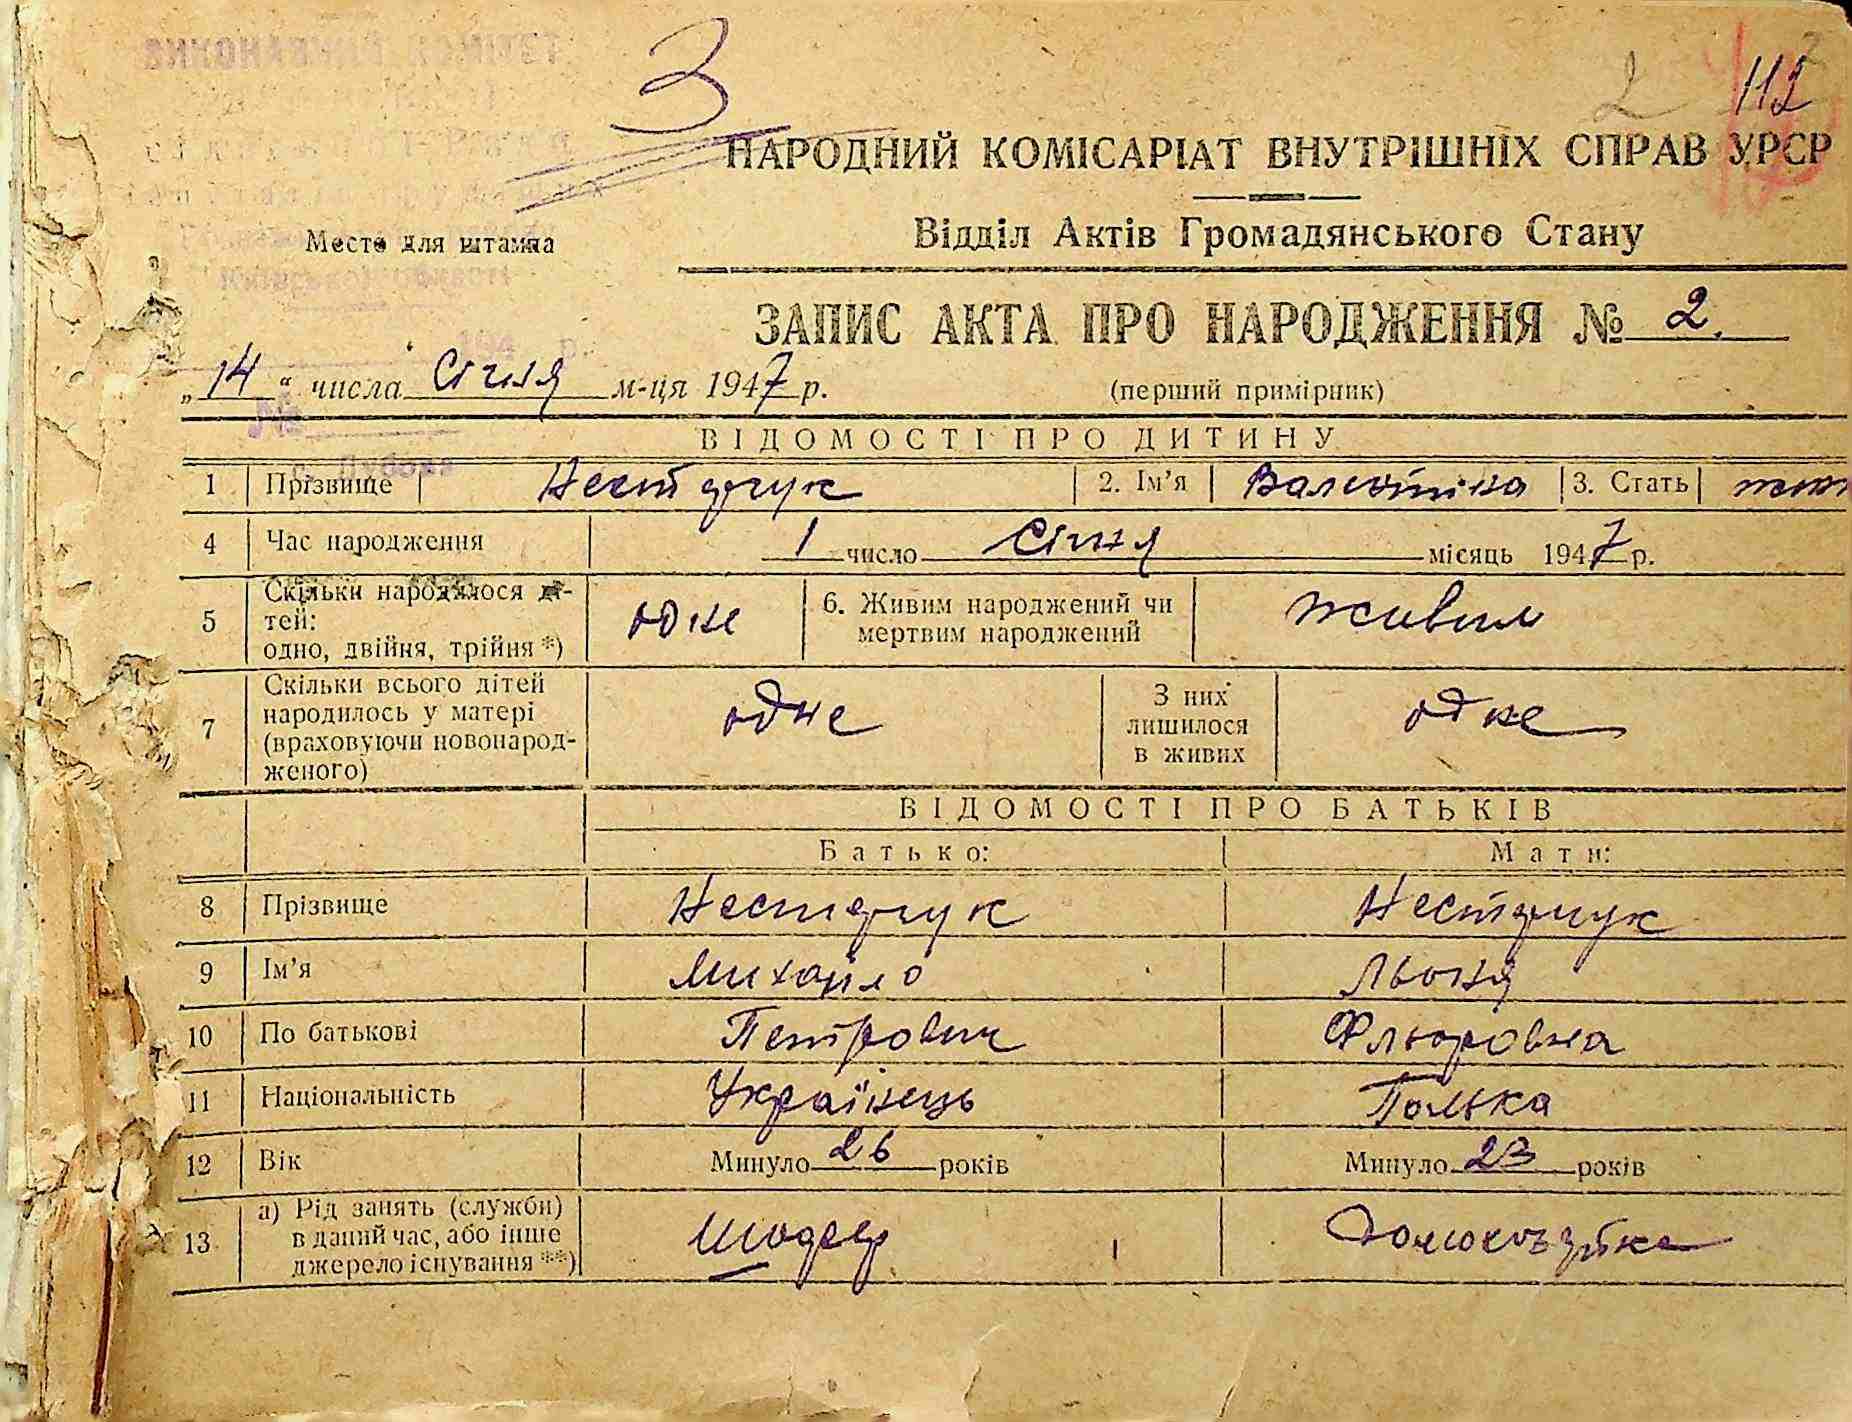 3
2 112
НАРОДНИЙ КОМІСАРІАТ ВНУТРІШНІХ СПРАВ УРСР
Відділ Актів Громадянського Стану
Место для штампа
ЗАПИС АКТА ПРО НАРОДЖЕННЯ № 2.
„14“ числа Січня м-ця 1947 р. (перший примірник)
ВІДОМОСТІ ПРО ДИТИНУ
1 Прізвище Нестерчук 2. Ім’я Валентіна 3. Стать
4 Час народження 1 число Січня місяць 1947 р.
5 Скільки народилося ді-
тей:
одно, двійня, трійня *) одне 6. Живим народжений чи
мертвим народжений живим
7 Скільки всього дітей
народилось у матері
(враховуючи новонарод-
женого) одне З них
лишилося
в живих одне
ВІДОМОСТІ ПРО БАТЬКІВ
Батько: Мати:
8 Прізвище Нестерчук Нестерчук
9 Ім’я Михайло Льоня
10 По батькові Петрович Флюровна
11 Національність Українець Полька
12 Вік Минуло 26 років Минуло 23 років
13 а) Рід занять (служби)
в даний час, або інше
джерело існування **) Шофер